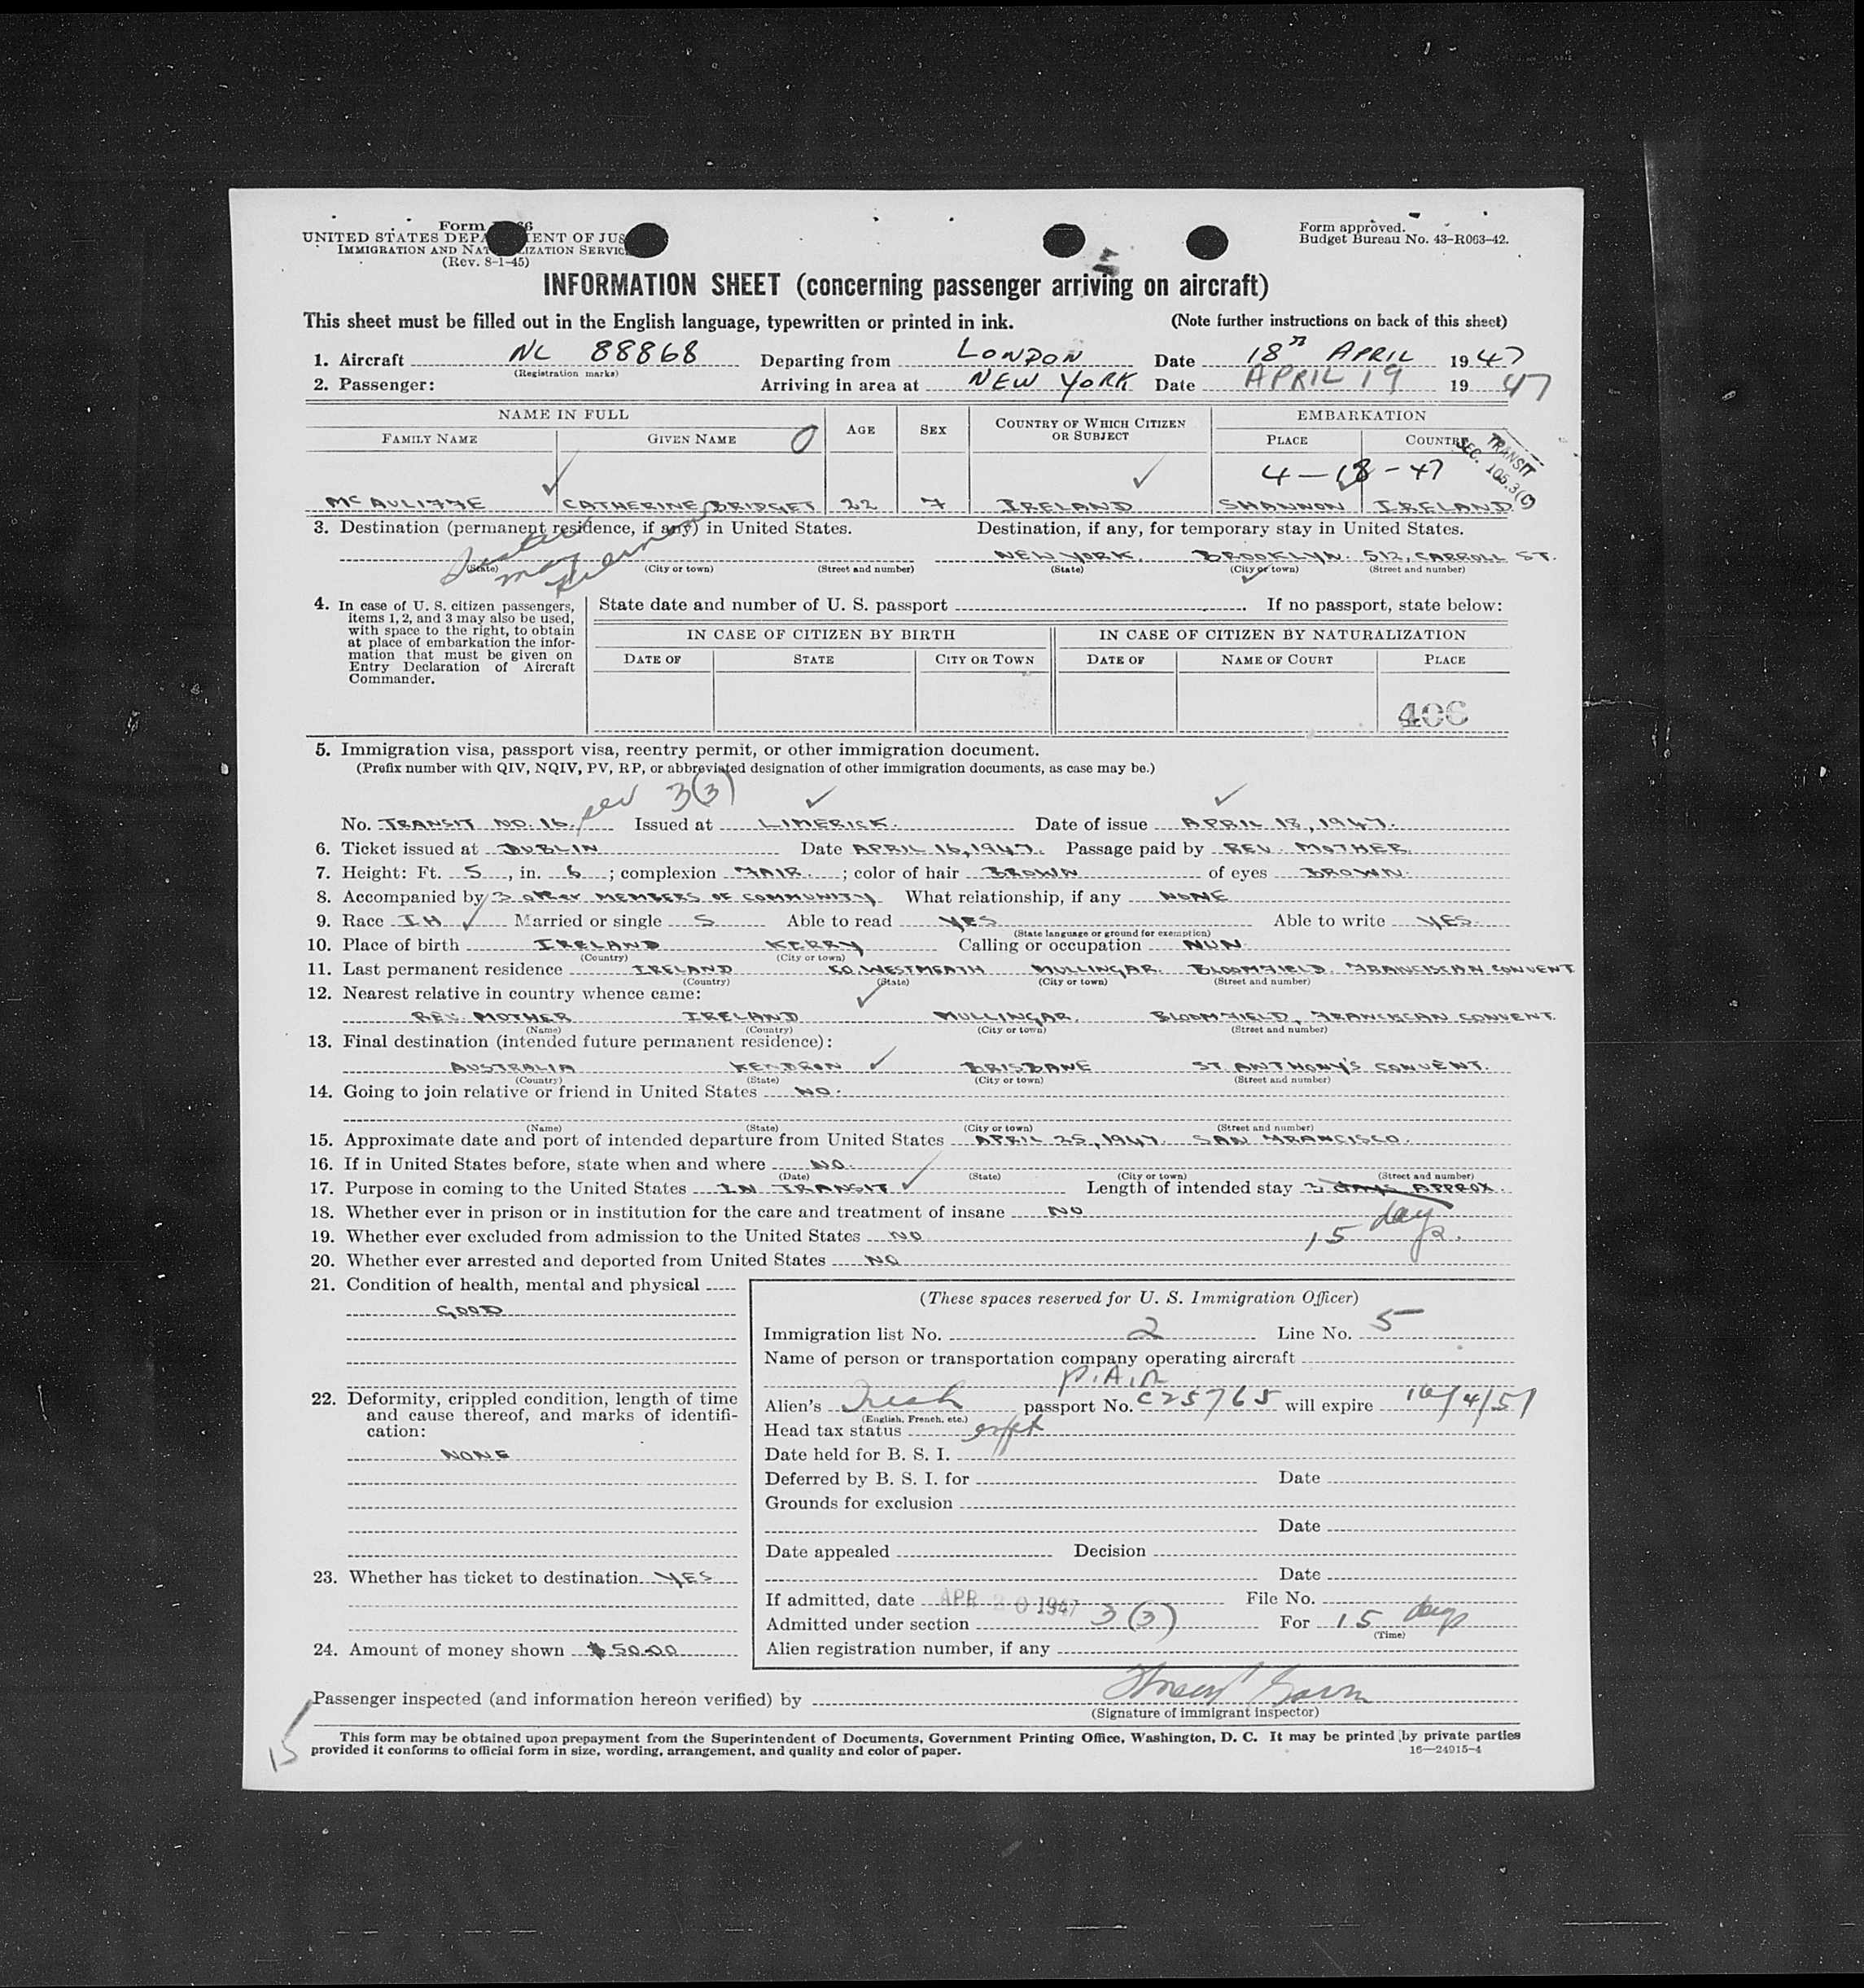 Form
UNITED STATES DEPA MENT OF JUS
IMMIGRATION AND NAT LIZATION SERVIC
(Rev. 8-1-45)
Form approved.
Budget Bureau No. 43-R063-42.
5
INFORMATION SHEET (concerning passenger arriving on aircraft)
This sheet must be filled out in the English language, typewritten or printed in ink. (Note further instructions on back of this sheet)
1. Aircraft NC 88868 Departing from LONDON Date 18TH APRIL 1947
(Registration marks)
2. Passenger: Arriving in area at NEW YORK Date APRIL 19 1947
NAME IN FULL EMBARKATION
FAMILY NAME GIVEN NAME O AGE SEX COUNTRY OF WHICH CITIZEN OR SUBJECT PLACE COUNTRY
TRANSIT
SEC. 106.3(C)
4-18-47
MCAULIFFE CATHERINE BRIDGET 22 F IRELAND SHANNON IRELAND
3. Destination (permanent residence, if any) in United States. Destination, if any, for temporary stay in United States.
NEW YORK. BROOKLYN. 512, CARROLL ST.
(State) (City or town) (Street and number) (State) (City or town) (Street and number)
4. In case of U. S. citizen passengers, items 1, 2, and 3 may also be used, with space to the right, to obtain at place of embarkation the information that must be given on Entry Declaration of Aircraft Commander.
State date and number of U. S. passport If no passport, state below:
IN CASE OF CITIZEN BY BIRTH IN CASE OF CITIZEN BY NATURALIZATION
DATE OF STATE CITY OR TOWN DATE OF NAME OF COURT PLACE
406
5. Immigration visa, passport visa, reentry permit, or other immigration document.
(Prefix number with QIV, NQIV, PV, RP, or abbreviated designation of other immigration documents, as case may be.)
3(3)
No. TRANSIT NO. 16. Issued at LIMERICK. Date of issue APRIL 18, 1947.
6. Ticket issued at DUBLIN Date APRIL 16, 1947. Passage paid by REV. MOTHER.
7. Height: Ft. 5, in. 6; complexion FAIR.; color of hair BROWN of eyes BROWN.
8. Accompanied by 3 other MEMBERS OF COMMUNITY What relationship, if any NONE
9. Race IH Married or single S Able to read YES Able to write YES.
(State language or ground for exemption)
10. Place of birth IRELAND KERRY Calling or occupation NUN.
(Country) (City or town)
11. Last permanent residence IRELAND CO. WESTMEATH MULLINGAR. BLOOMFIELD. FRANCISCAN CONVENT
(Country) (State) (City or town) (Street and number)
12. Nearest relative in country whence came:
REV. MOTHER IRELAND MULLINGAR. BLOOMFIELD, FRANCISCAN CONVENT.
(Name) (Country) (City or town) (Street and number)
13. Final destination (intended future permanent residence):
AUSTRALIA KENDRON BRISBANE ST. ANTHONY'S CONVENT.
(Country) (State) (City or town) (Street and number)
14. Going to join relative or friend in United States NO.
(Name) (State) (City or town) (Street and number)
15. Approximate date and port of intended departure from United States APRIL 25, 1947. SAN FRANCISCO.
16. If in United States before, state when and where NO.
(Date) (State) (City or town) (Street and number)
17. Purpose in coming to the United States IN TRANSIT Length of intended stay 3 days APPROX.
18. Whether ever in prison or in institution for the care and treatment of insane NO
15 days.
19. Whether ever excluded from admission to the United States NO
20. Whether ever arrested and deported from United States NO
21. Condition of health, mental and physical
GOOD
22. Deformity, crippled condition, length of time and cause thereof, and marks of identification:
NONE
23. Whether has ticket to destination YES
24. Amount of money shown $50.00
(These spaces reserved for U. S. Immigration Officer)
Immigration list No. 2 Line No. 5
Name of person or transportation company operating aircraft
P.A.A
Alien's Irish passport No. C25765 will expire 16/4/51
(English, French, etc.)
Head tax status
Date held for B. S. I.
Deferred by B. S. I. for Date
Grounds for exclusion
Date
Date appealed Decision
Date
If admitted, date APR 20 1947 File No.
Admitted under section 3(3) For 15 days
(Time)
Alien registration number, if any
Passenger inspected (and information hereon verified) by
(Signature of immigrant inspector)
15
This form may be obtained upon prepayment from the Superintendent of Documents, Government Printing Office, Washington, D. C. It may be printed by private parties
provided it conforms to official form in size, wording, arrangement, and quality and color of paper. 16—24915-4